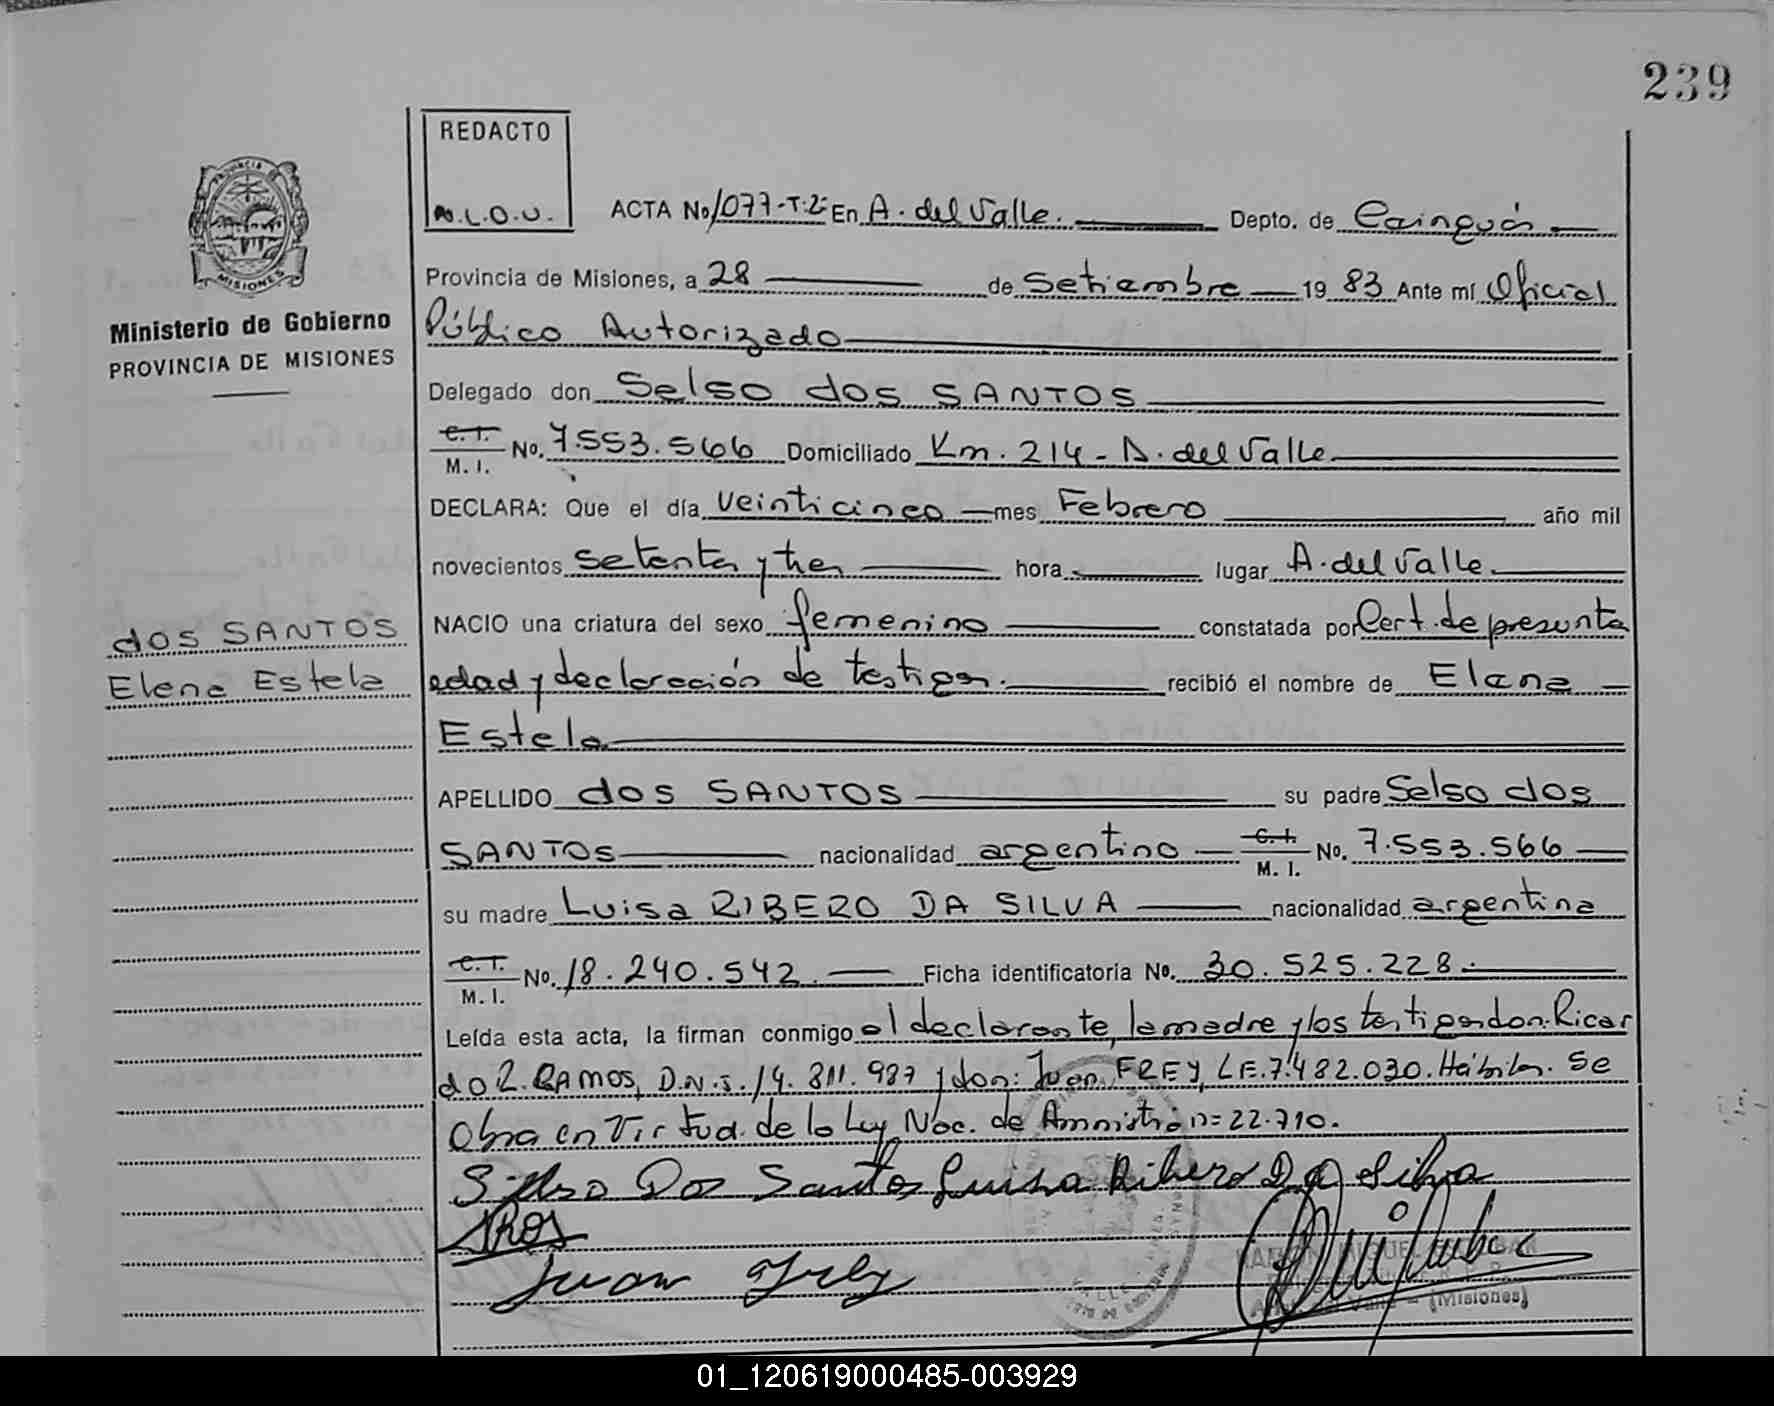 239
REDACTO
M.L.O.V.
ACTA No 1077-T.2- En A. del Valle. Depto. de Cainguás
Provincia de Misiones, a 28 de Setiembre 19 83 Ante mí Oficial
Público Autorizado
Ministerio de Gobierno
PROVINCIA DE MISIONES
Delegado don Selso dos SANTOS
C.I. M. I. No. 7.553.566 Domiciliado Km. 214 - A. del Valle
DECLARA: Que el día veinticinco mes Febrero año mil
novecientos setenta y tres hora lugar A. del Valle.
NACIO una criatura del sexo femenino constatada por Cert. de presunta
dos SANTOS
Elena Estela
edad y declaración de testigos. recibió el nombre de Elena
Estela
APELLIDO dos SANTOS su padre Selso dos
SANTOS nacionalidad argentino C.I. M. I. No. 7.553.566
su madre Luisa RIBERO DA SILVA nacionalidad argentina
C.I. M. I. No. 18.240.542. Ficha identificatoria No. 30.525.228.
Leída esta acta, la firman conmigo el declarante, la madre y los testigos don: Ricar
do R. RAMOS, D.N.I. 14.811.987 y don: Juan FREY, L.E. 7.482.030. Hábiles. Se
Obra en Virtud de la Ley Nac. de Amnistía n= 22.710.
Selso Dos Santos Luisa Ribero Da Silva
Juan Frey
MIGUEL
(Misiones)
01_120619000485-003929